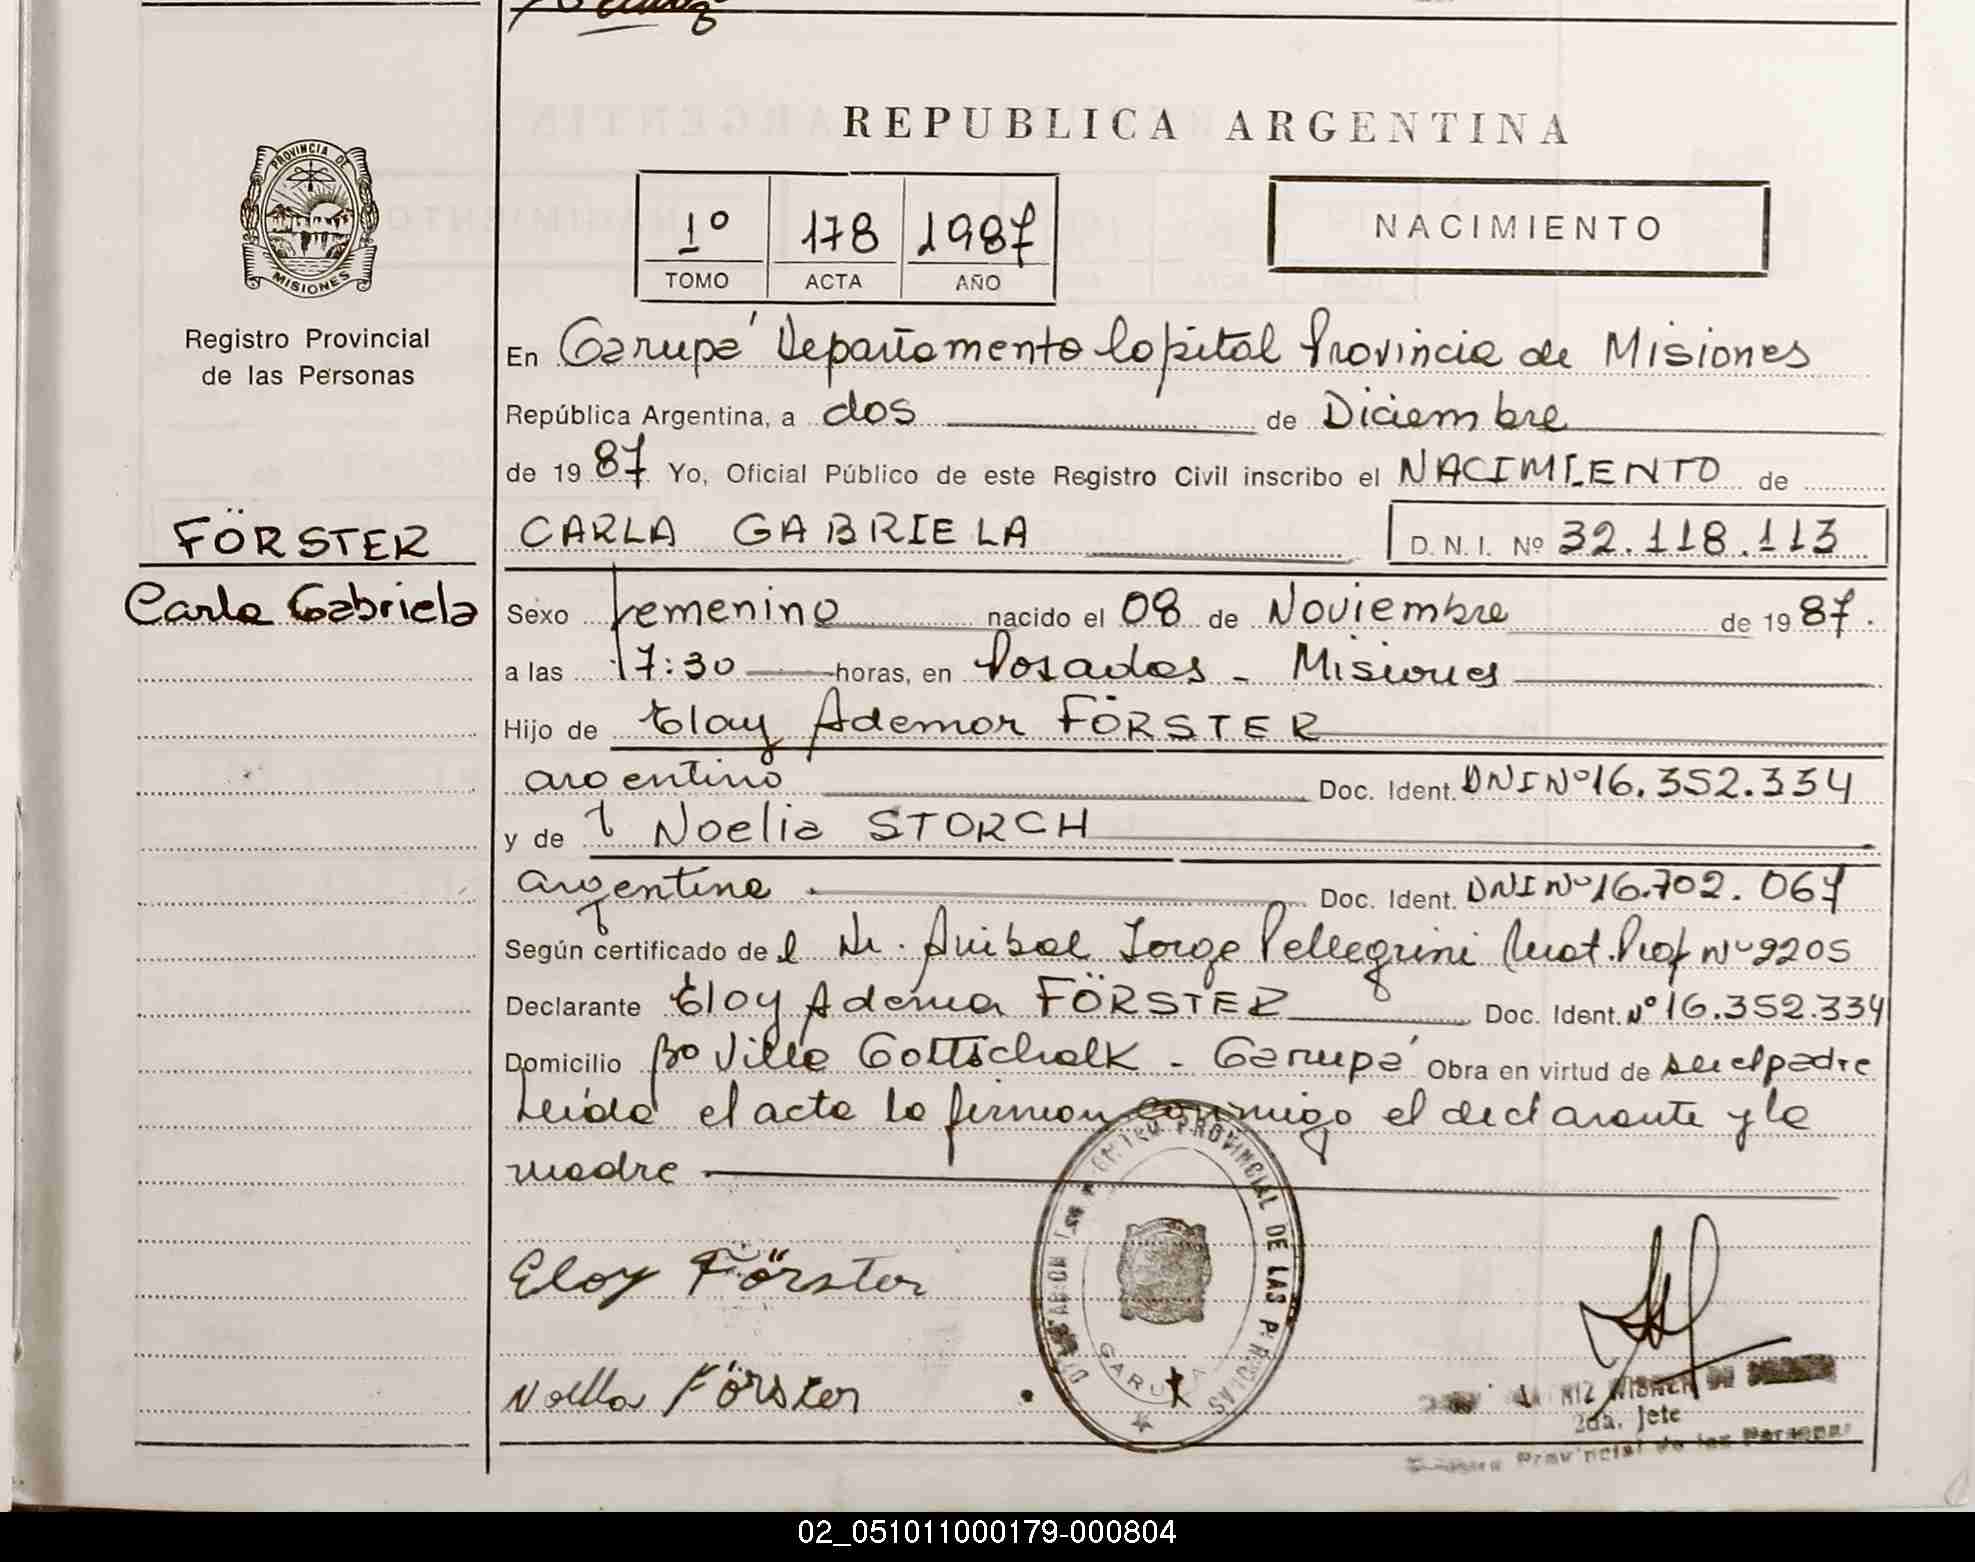 REPUBLICA ARGENTINA
PROVINCIA DE
MISIONES
Registro Provincial
de las Personas
1º 178 1987
TOMO ACTA AÑO
NACIMIENTO
En Garupá Departamento Capital Provincia de Misiones
República Argentina, a dos de Diciembre
de 19 87 Yo, Oficial Público de este Registro Civil inscribo el NACIMIENTO de
FÖRSTER
Carla Gabriela
CARLA GABRIELA D. N. I. Nº 32.118.113
Sexo femenino nacido el 08 de Noviembre de 19 87.
a las 17:30 horas, en Posadas - Misiones
Hijo de Eloy Ademar FÖRSTER
argentino Doc. Ident. DNI Nº 16.352.334
y de Noelia STORCH
argentina Doc. Ident. DNI Nº 16.702.067
Según certificado de l Dr. Anibal Jorge Pellegrini Mat. Prof Nº 2205
Declarante Eloy Ademar FÖRSTER Doc. Ident. Nº 16.352.334
Domicilio Bº Villa Gottschalk - Garupá Obra en virtud de ser el padre
Leída el acta la firman conmigo el declarante y la
madre
Eloy Förster
Noelia Förster
PROVINCIAL DE LAS
GARUPA
2da. Jefe
Provincial de las Personas
02_051011000179-000804